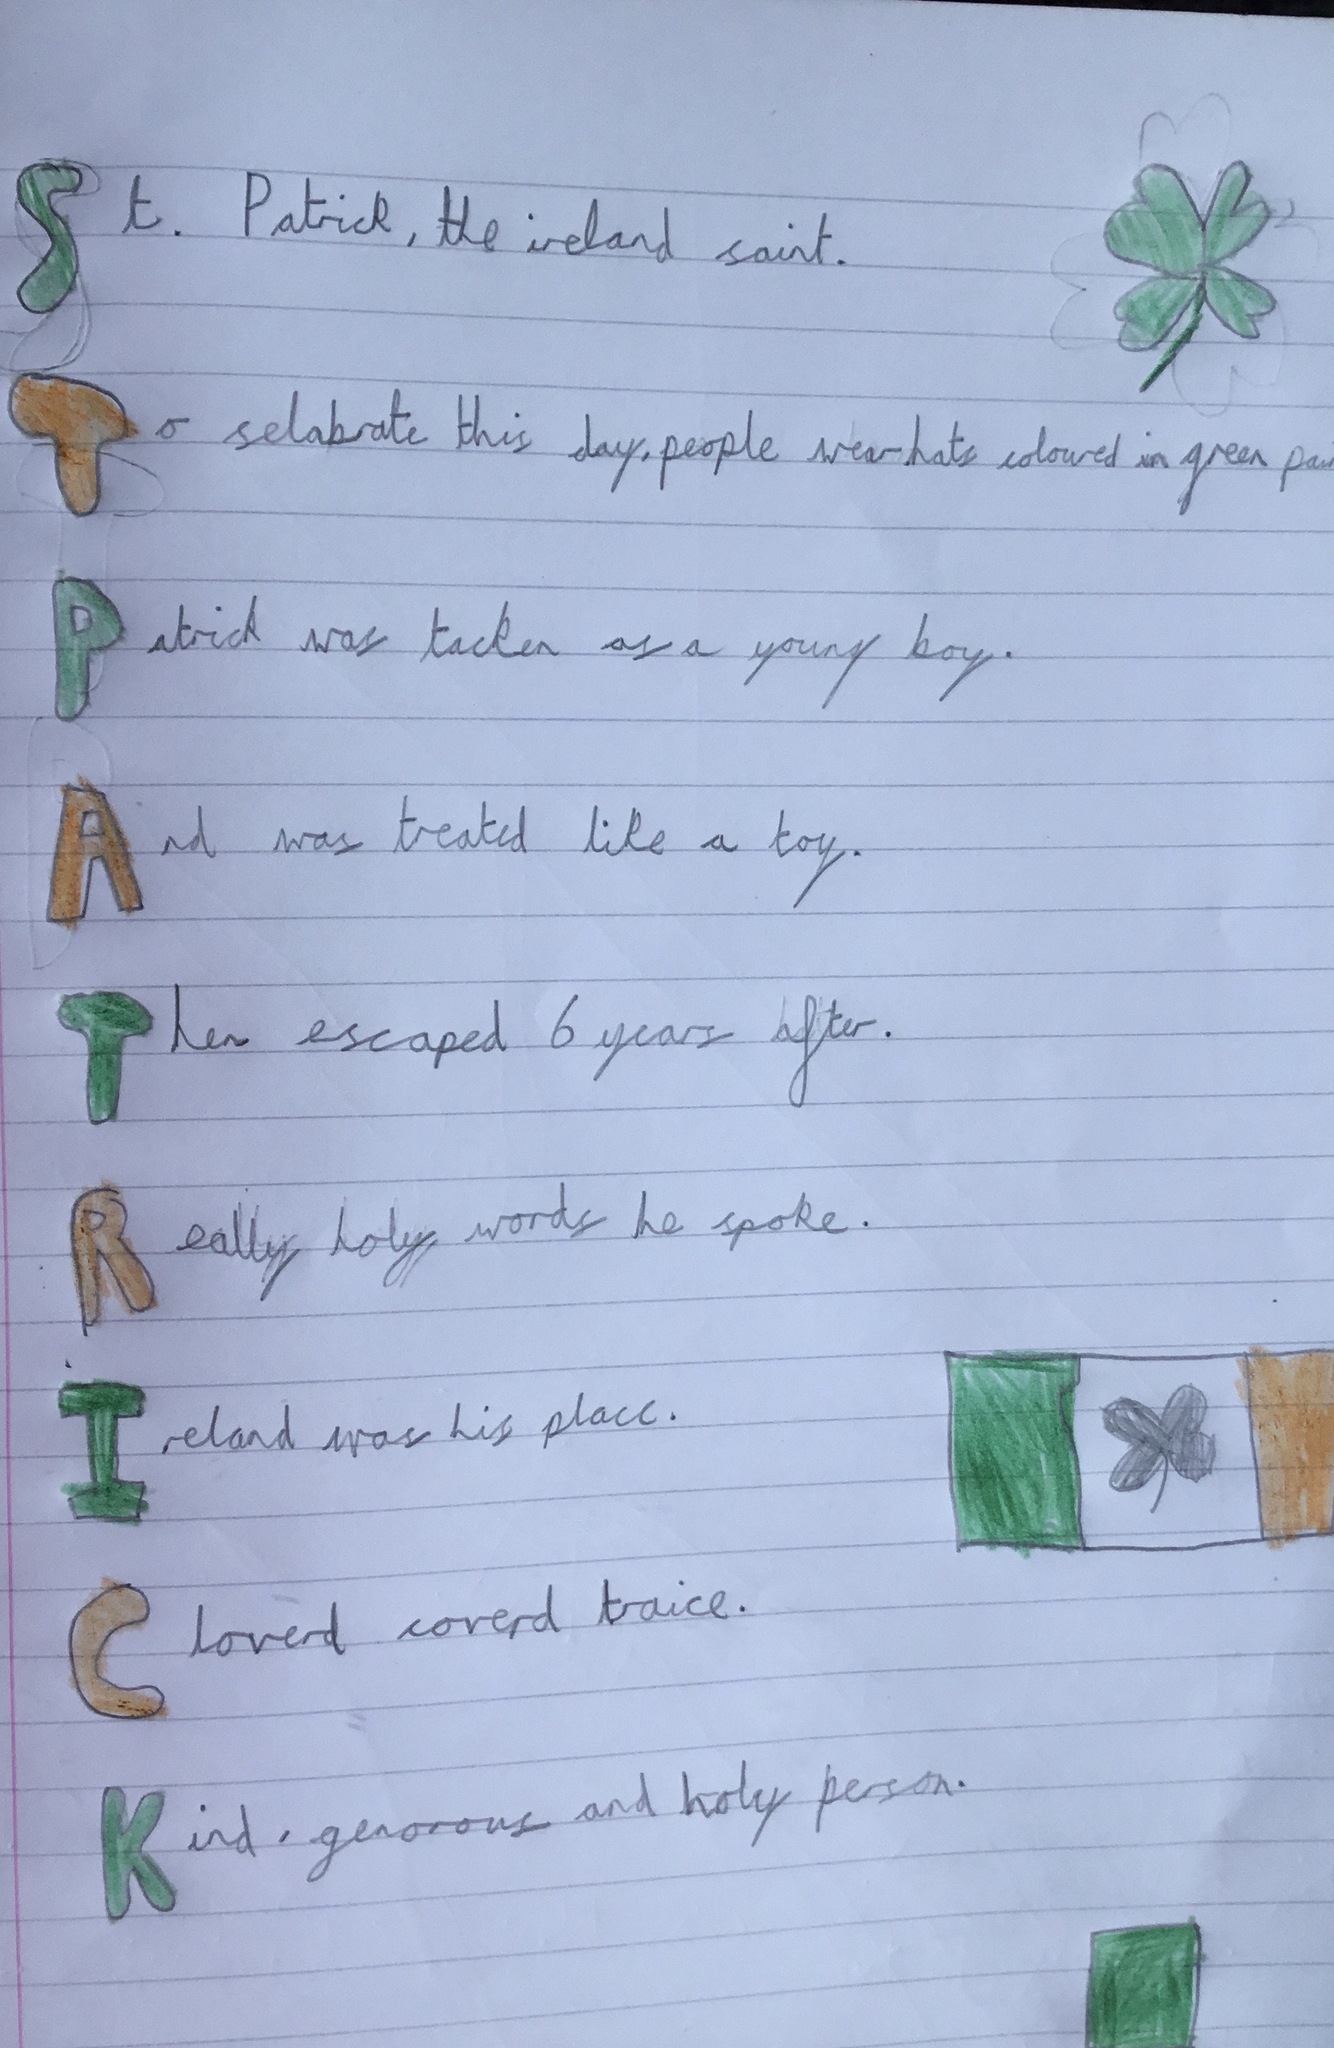 St. Patrick, the ireland saint.
To selabrate this day, people wear hats coloured in green
Patrick was tacken as a young boy.
And was treated like a toy.
Then escaped 6 years after.
Really holy words he spoke.
Ireland was his place.
Cloverd coverd traice.
Kind, genorous and holy person.